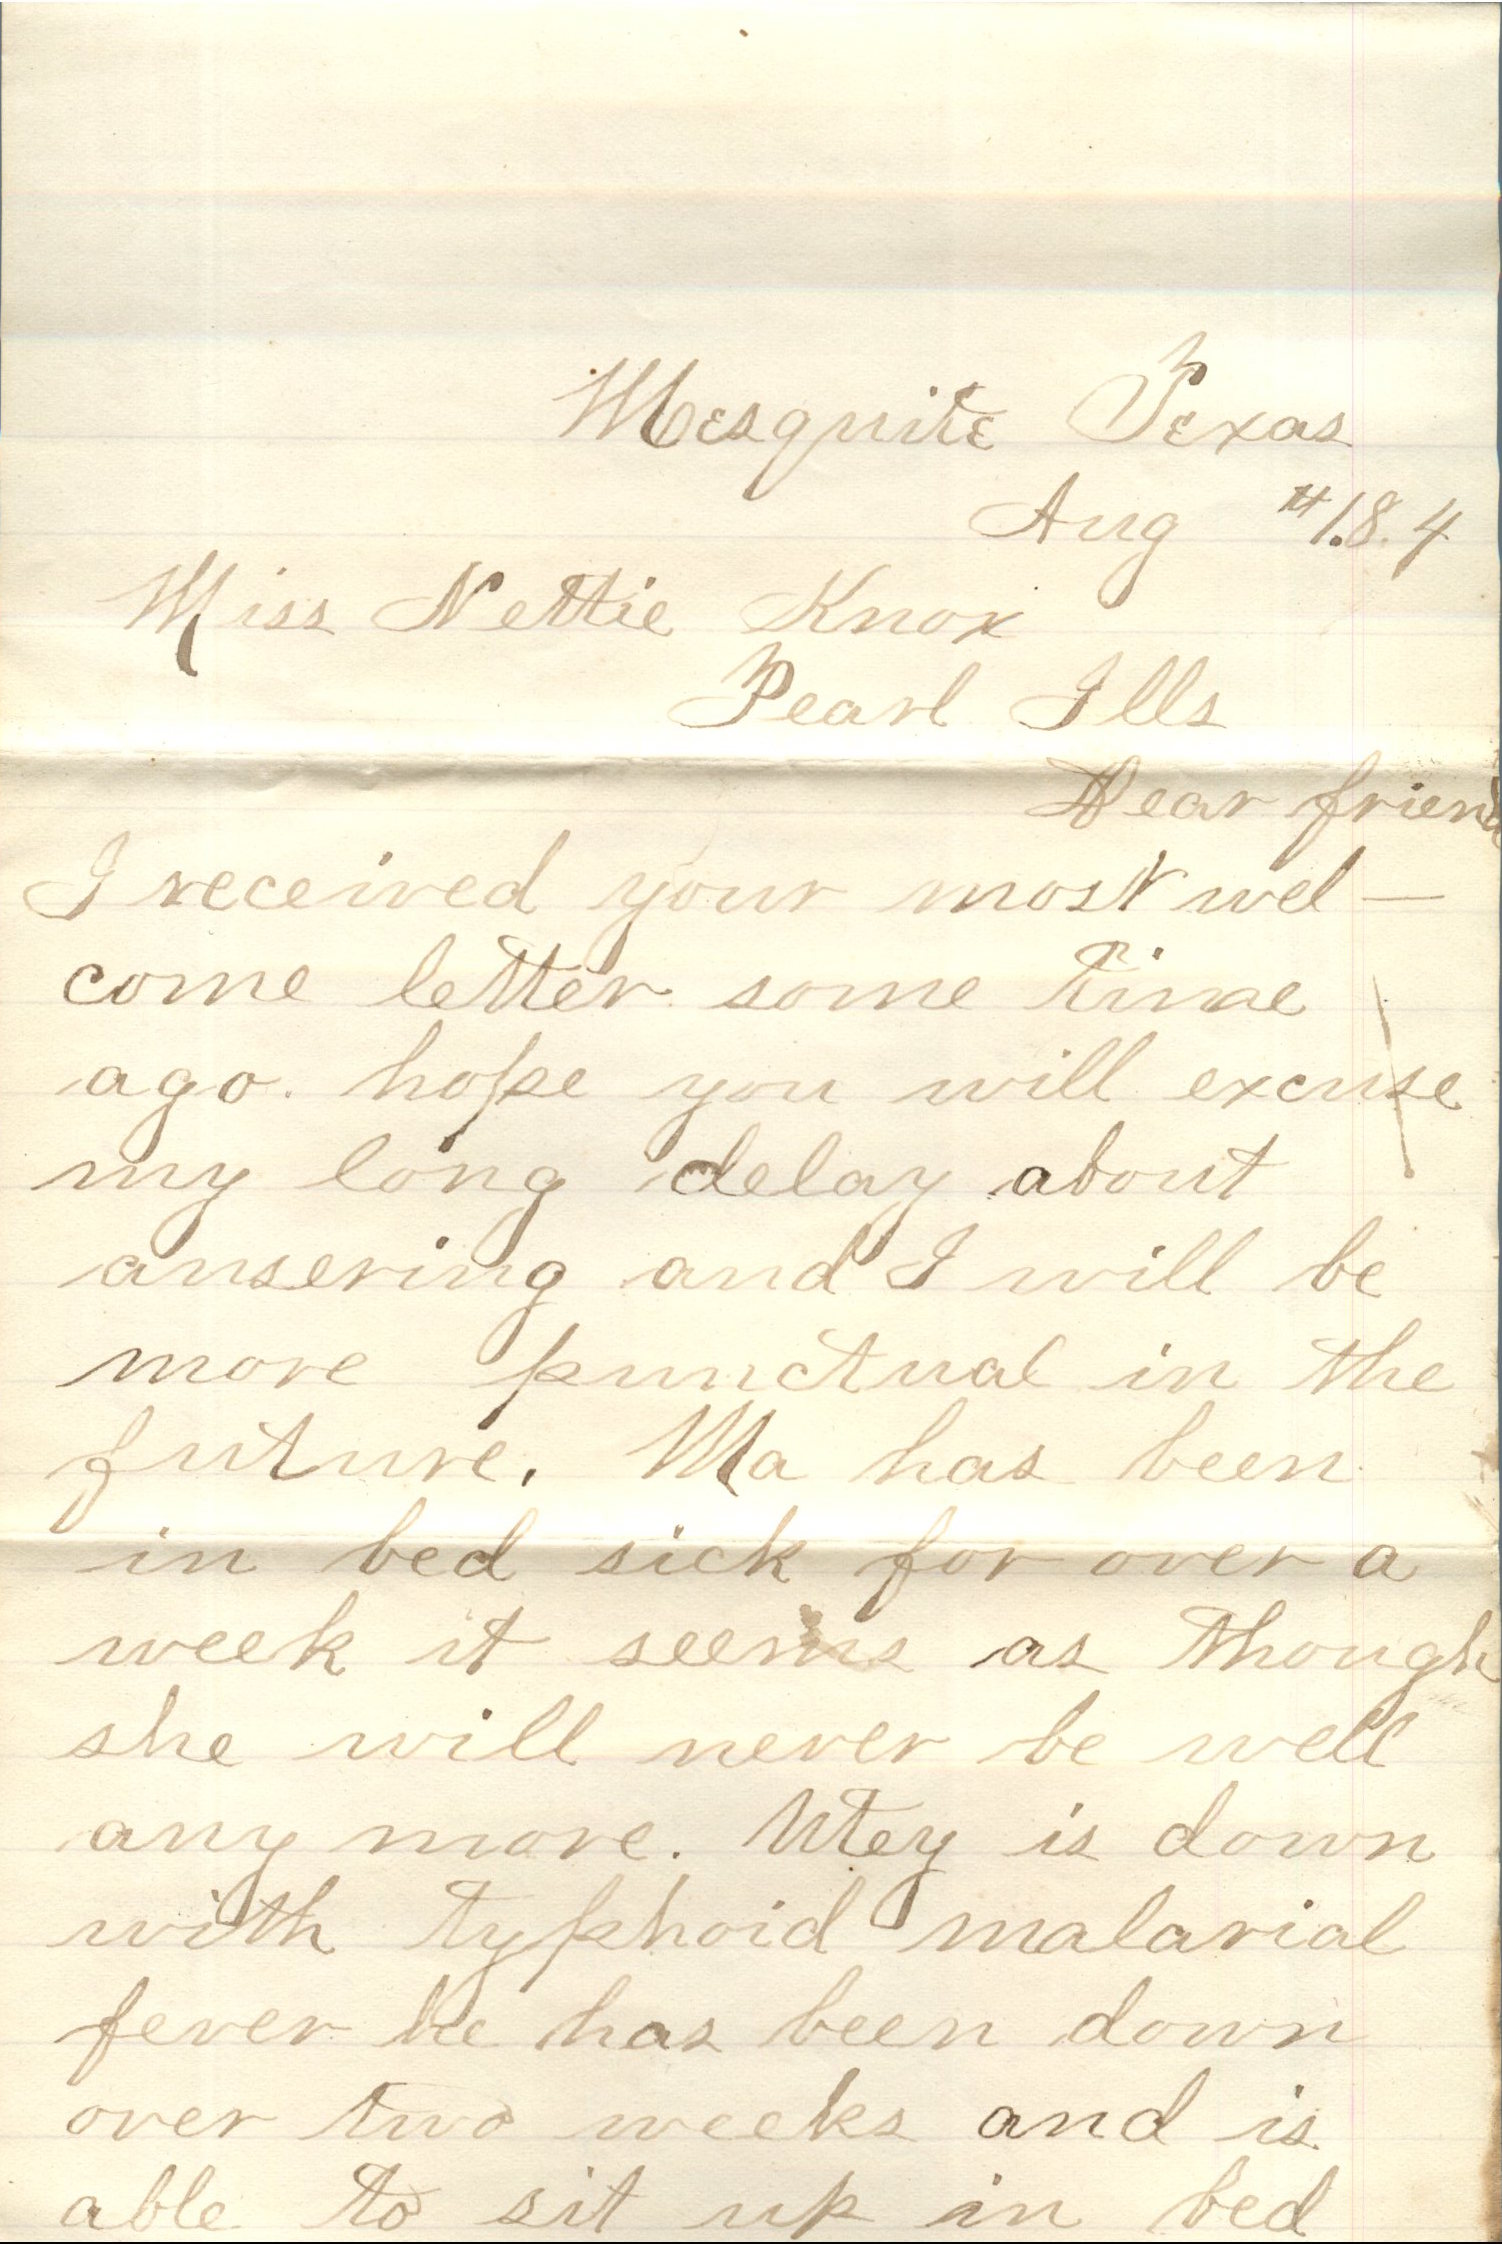 Mesquite Texas
Aug 18. 4
Miss Nettie Knox
Pearl Ills
Dear friend
I received your most wel—
come letter some time
ago. hope you will excuse
my long delay about
ansering and I will be
more punctual in the
future. Ma has been
in bed sick for over a
week it seems as though
she will never be well
any more. Utey is down
with typhoid malarial
fever he has been down
over two weeks and is
able to sit up in bed